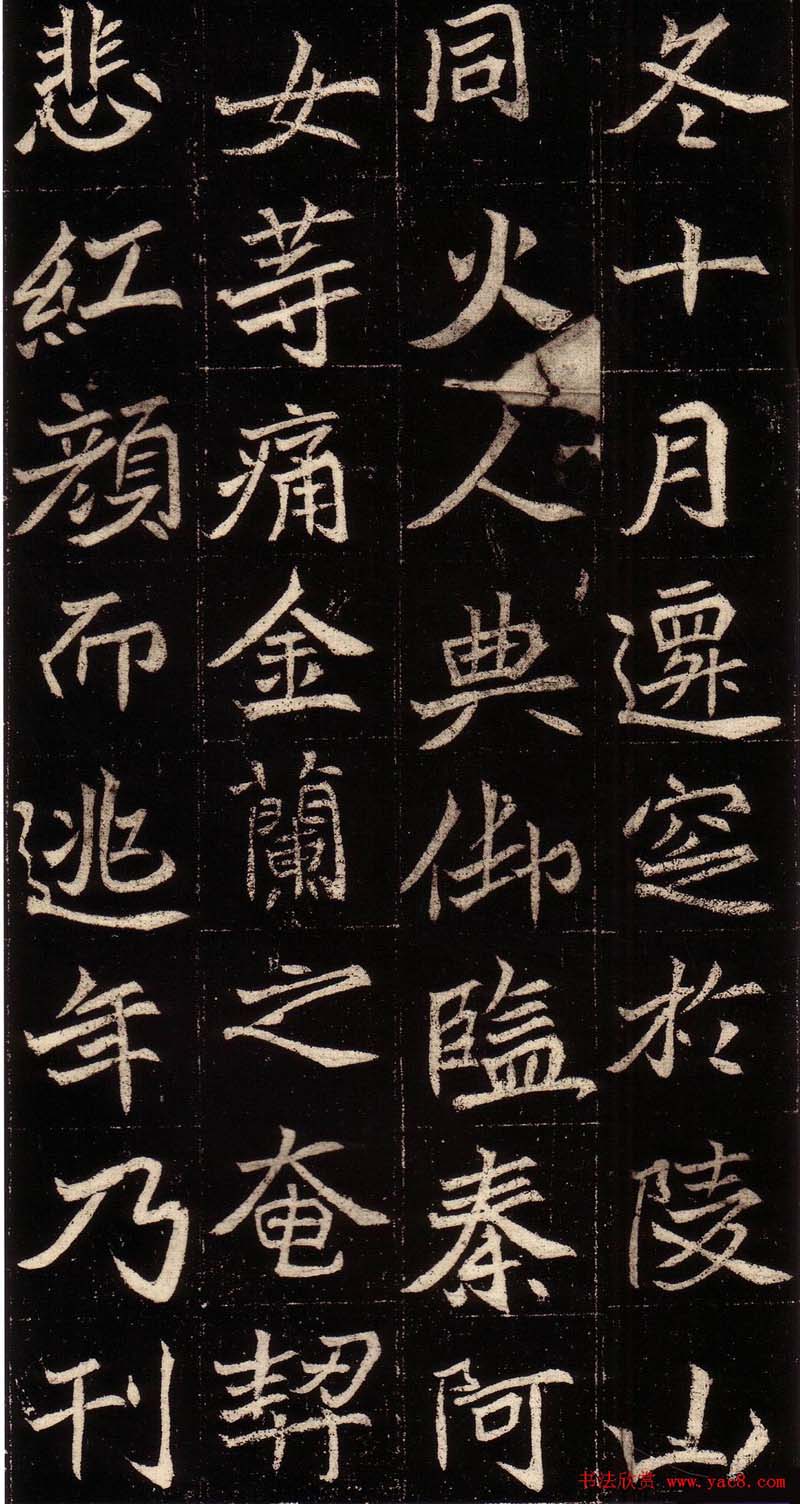 冬十月遷窆於陵山
同火人典御監秦阿
女荨痛金蘭之奄契
悲紅顔而逃年乃刊
书法欣赏 www.yac8.com